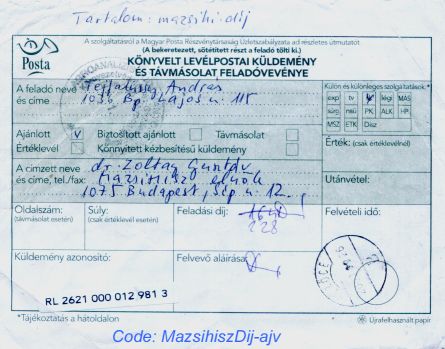 Tartalom: mazsihi-díj
A szolgáltatásról a Magyar Posta Részvénytársaság Üzletszabályzata ad részletes útmutatót
(A bekeretezett, sötétített részt a feladó tölti ki.)
Posta
KÖNYVELT LEVÉLPOSTAI KÜLDEMÉNY
ÉS TÁVMÁSOLAT FELADÓVEVÉNYE
A feladó neve
és címe
András
1036 Bp. Lajos u. 115
Különös és különleges szolgáltatások
exp tv k kígi MÁS
sür PK ALK
MSZ ÉTK Dísz
Ajánlott V Biztosított ajánlott Távmásolat
Értéklevél Könnyített kézbesítésű küldemény
Érték: (csak értéklevélnél)
A címzett neve
és címe, tel./fax:
dr. Zoltay Gusztáv
Mazsihisz elnök
1075 Budapest, Síp u. 12.
Utánvétel:
Oldalszám: (távmásolat esetén)
Súly: (csak értéklevél esetén)
Feladási díj:
228
Felvételi idő:
Küldemény azonosító:
Felvevő aláírása:
RL 2621 000 012 981 3
*Tájékoztatás a hátoldalon
Újrafelhasznált papír
Code: MazsihiszDij-ajv